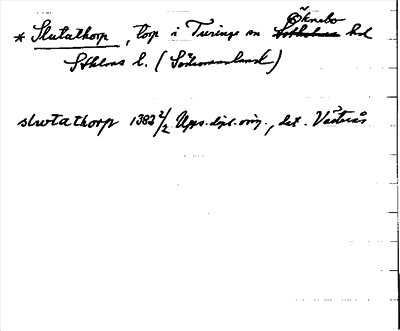 * Slutathorp, torp i Turinge sn Öknebo hd
Sthlms l. (Södermanland)
slwtathorp 1383 2/2 Upps. dipl. orig., dat. Västerås